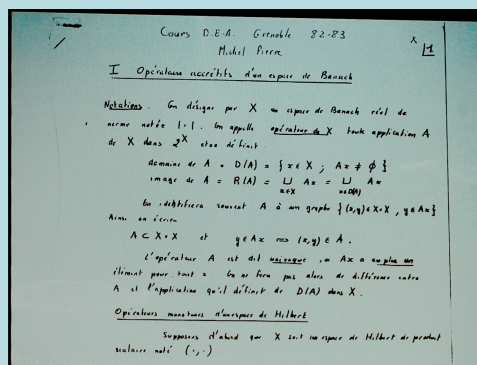 Cours D.E.A. Grenoble 82-83
Michel Pierre
1
I Opérateurs accrétifs d'un espace de Banach
Notations. On désigne par X un espace de Banach réel de
norme notée |·|. On appelle opérateur de X toute application A
de X dans 2^X et on définit :
domaine de A = D(A) = {x ∈ X ; Ax ≠ ∅}
image de A = R(A) = ∪_{x∈X} Ax = ∪_{x∈D(A)} Ax
On identifiera souvent A à son graphe {(x,y) ∈ X×X, y ∈ Ax}
Ainsi on écrira
A ⊂ X×X et y ∈ Ax ⟺ (x,y) ∈ A.
L'opérateur A est dit univoque, si Ax a au plus un
élément pour tout x. On ne fera pas alors de différence entre
A et l'application qu'il définit de D(A) dans X.
Opérateurs monotones d'un espace de Hilbert
Supposons d'abord que X soit un espace de Hilbert de produit
scalaire noté (·,·).